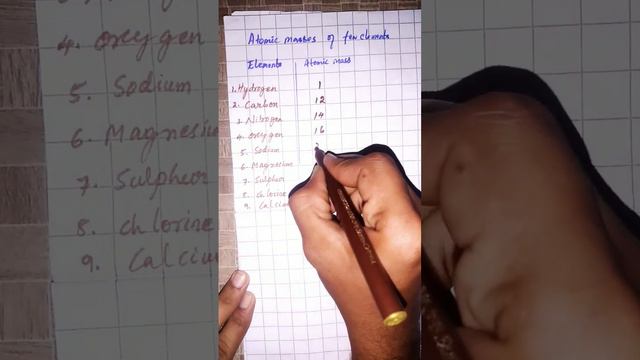 Atomic masses of few elements
Elements Atomic mass
1. Hydrogen 1
2. Carbon 12
3. Nitrogen 14
4. Oxygen 16
5. Sodium
6. Magnesium
7. Sulpheor
8. chlorine
9. Calcium
4. oxygen
5. Sodium
6. Magnesiu
7. Sulpheor
8. chlorine
9. Calciu